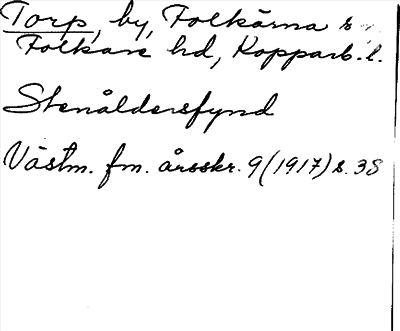 Torp, by, Folkärna s
Folkare hd, Kopparb. l.
Stenåldersfynd
Västm. fm. årsskr. 9 (1917) s. 38